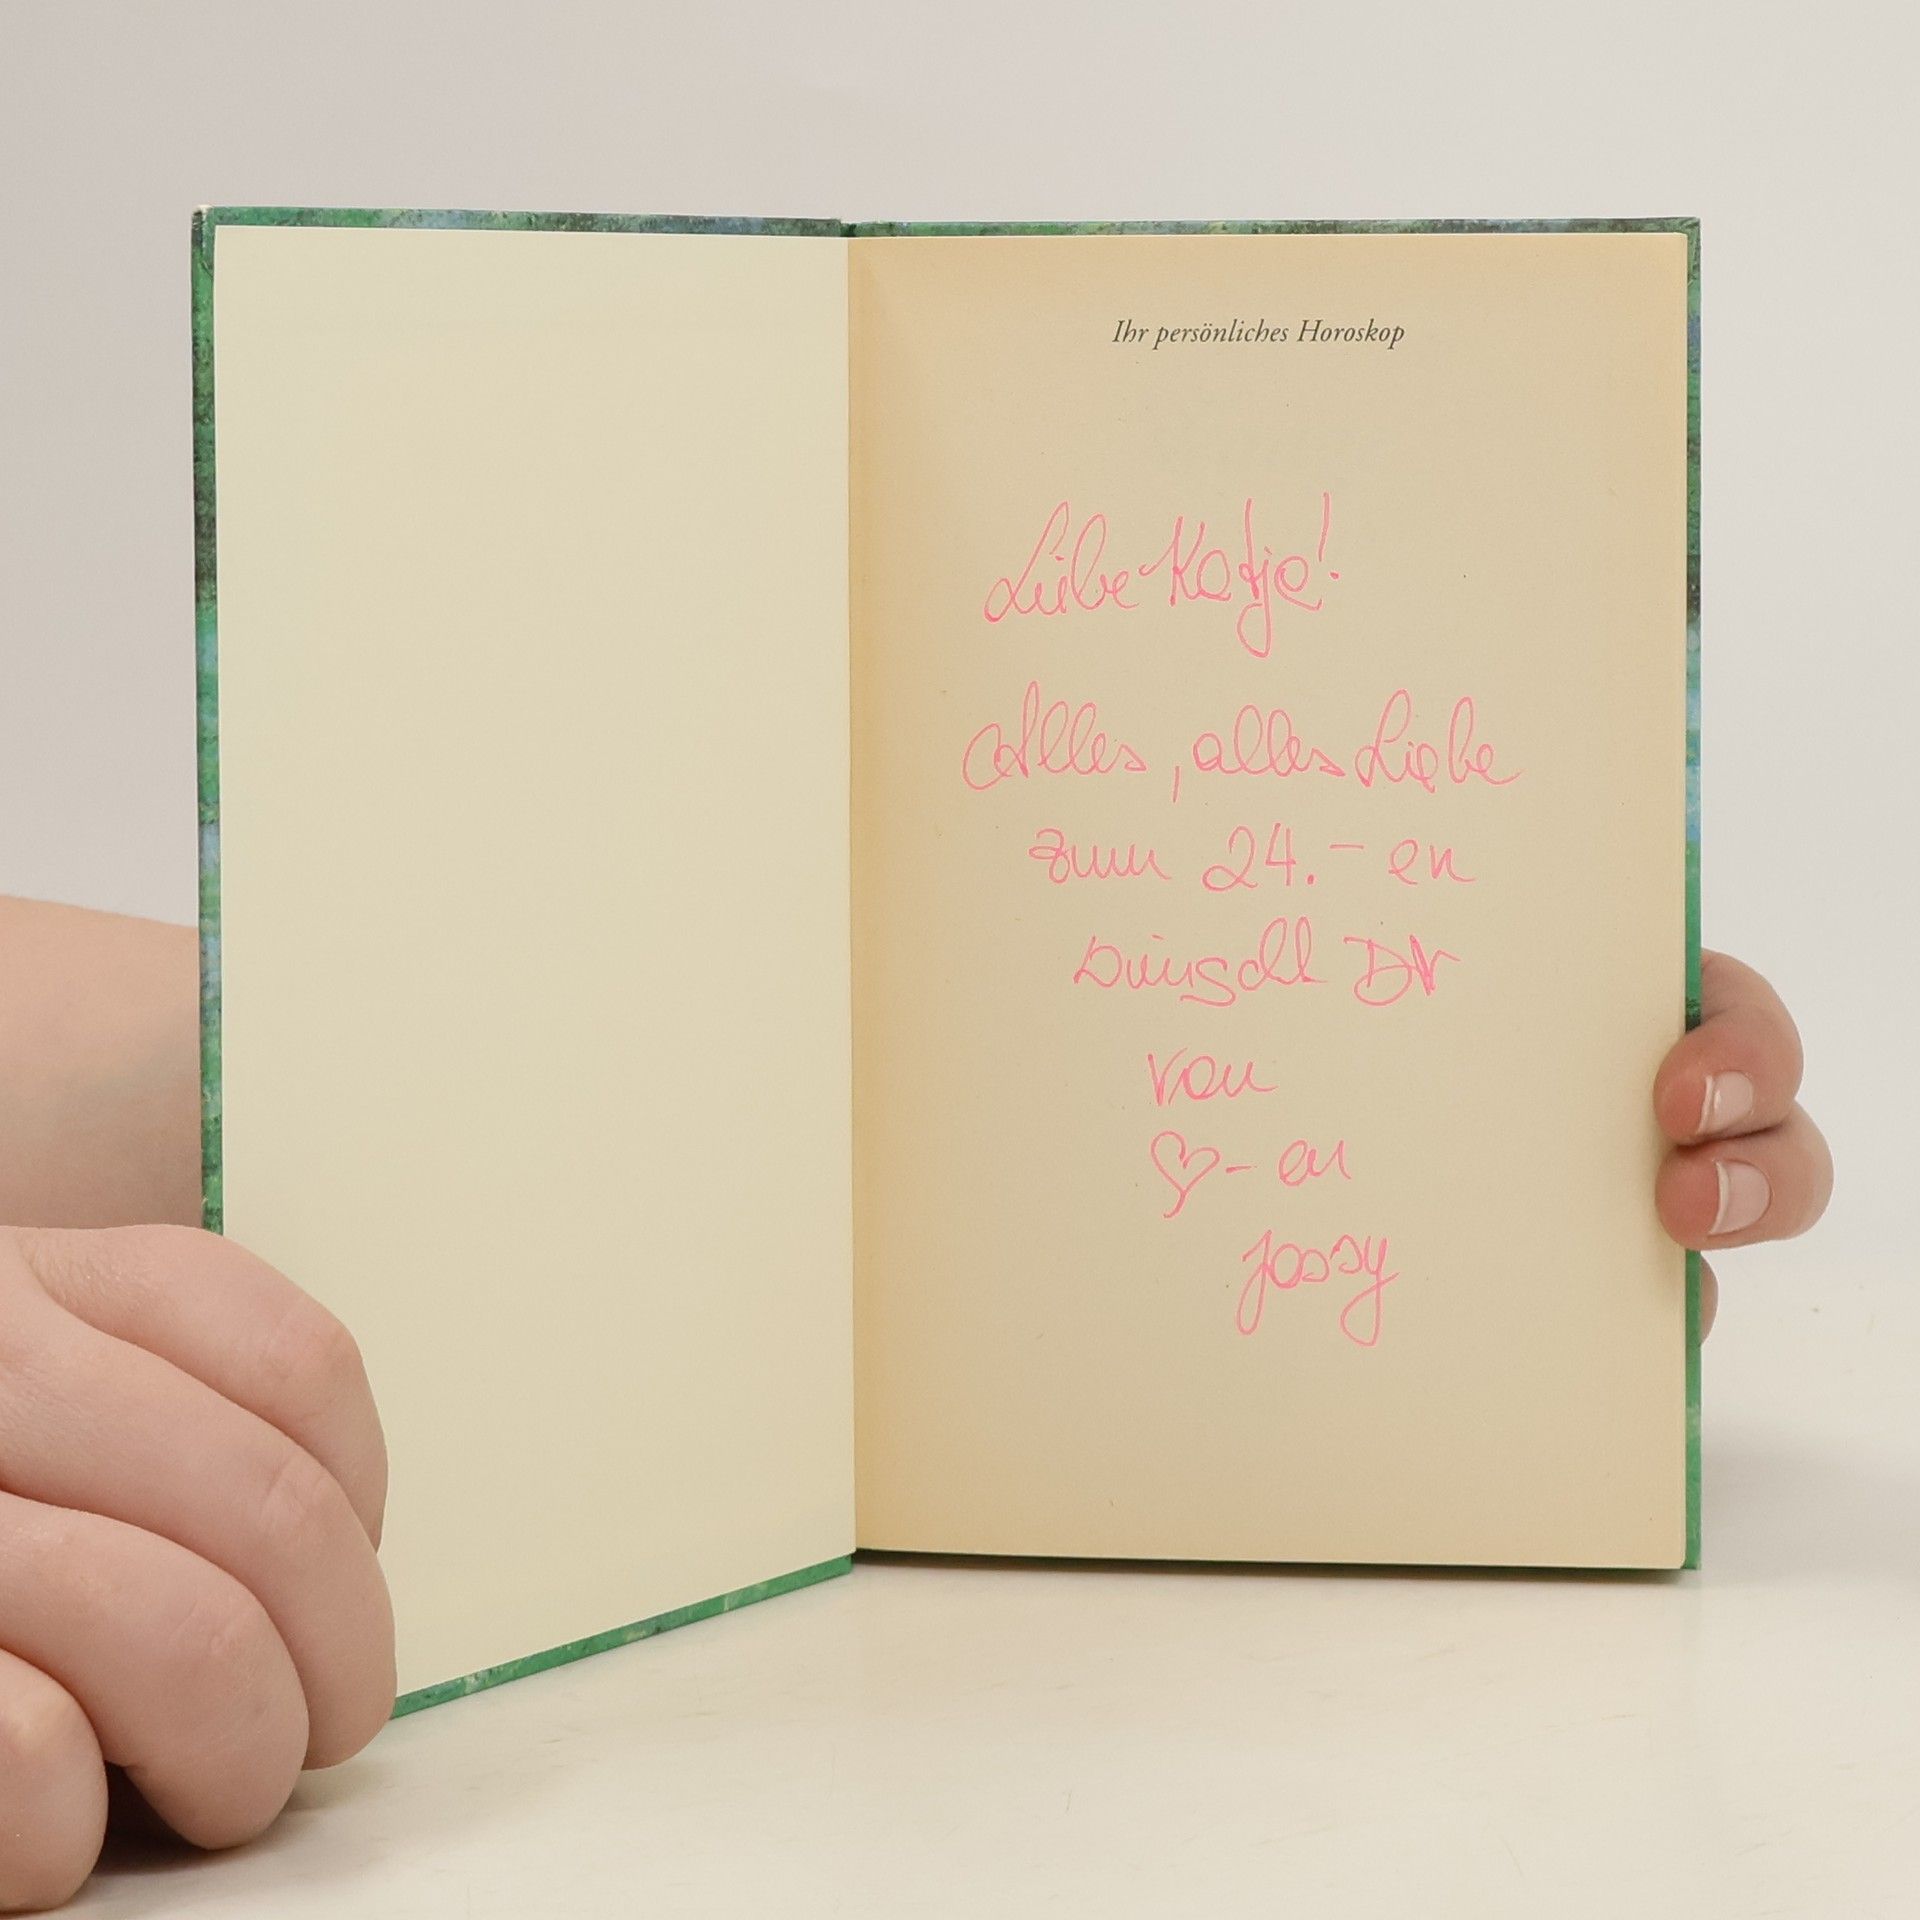 Ihr persönliches Horoskop
Liebe Katja!
Alles, alles Liebe
zum 24.-en
wünscht Dir
von
♡-en
Jossy